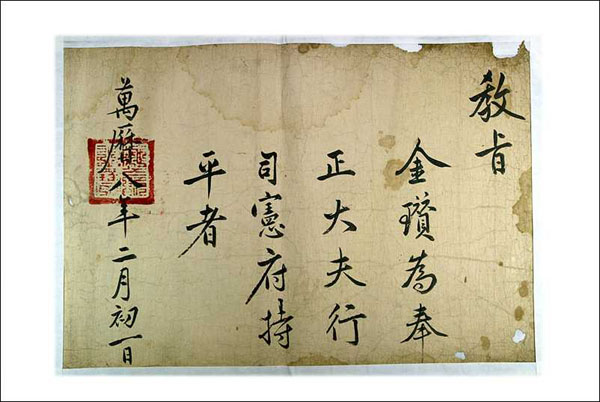 教旨
金瓚為奉
正大夫行
司憲府持
平者
萬曆八年二月初一日